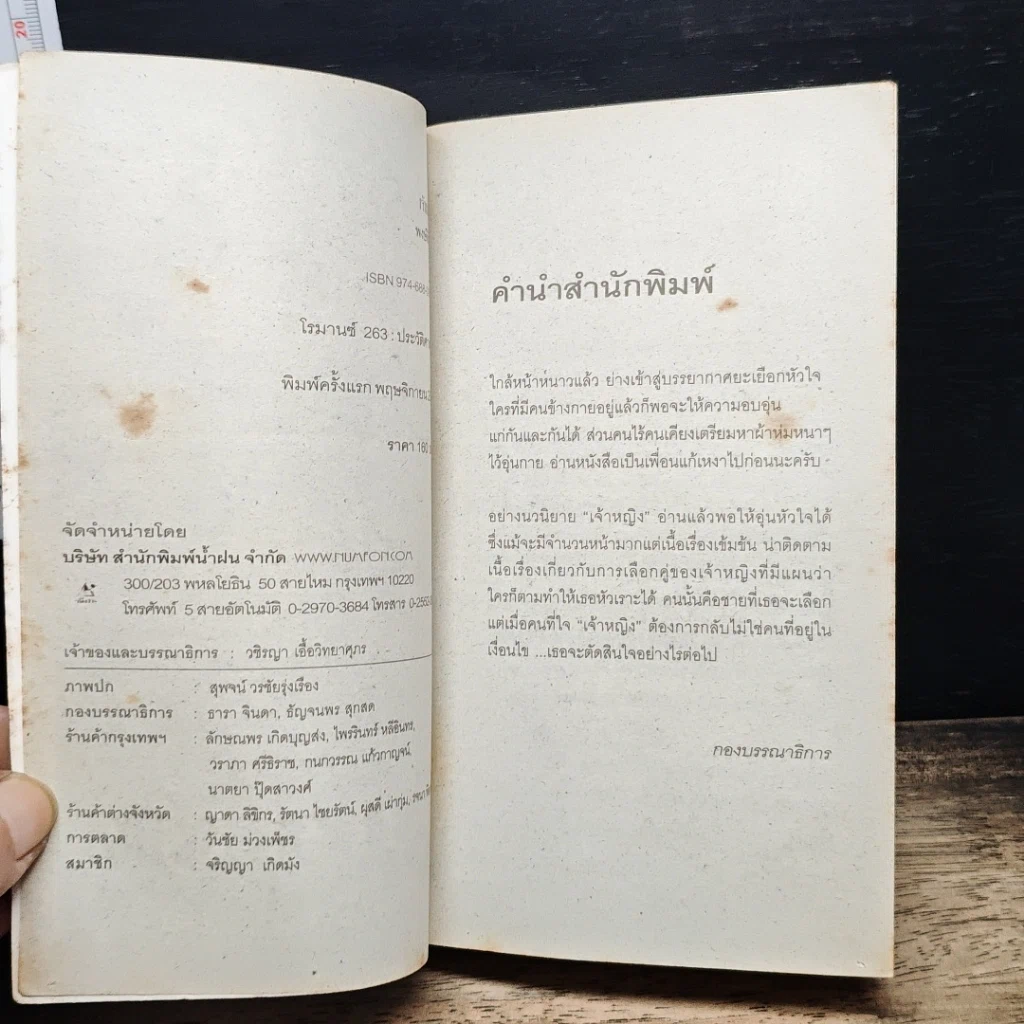 20
ISBN 974-
โรมานซ์ 263 :
พิมพ์ครั้งแรก
ราคา 160
จัดจำหน่ายโดย
บริษัท สำนักพิมพ์น้ำฝน จำกัด
300/203 พหลโยธิน 50 สายไหม กรุงเทพฯ 10220
โทรศัพท์ 5 สายอัตโนมัติ 0-2970-3684 โทรสาร
เจ้าของและบรรณาธิการ : วชิรญา เอื้อวิทยาศุภร
ภาพปก : สุพจน์ วรชัยรุ่งเรือง
กองบรรณาธิการ : ธารา จินดา, ธัญจนพร สุกสด
ร้านค้ากรุงเทพฯ : ลักษณพร เกิดบุญส่ง, ไพรรินทร์ หลีอินทร,
วราภา ศรีธิราช, กนกวรรณ แก้วกาญจน์
นาตยา ปุ๊ดสาวงศ์
ร้านค้าต่างจังหวัด : ญาดา ลิขิกร, รัตนา ไชยรัตน์, ผุสดี เผ่ากุ่ม,
การตลาด : วันชัย ม่วงเพ็ชร
สมาชิก : จริญญา เกิดมัง
คำนำสำนักพิมพ์
ใกล้หน้าหนาวแล้ว ย่างเข้าสู่บรรยากาศยะเยือกหัวใจ
ใครที่มีคนข้างกายอยู่แล้วก็พอจะให้ความอบอุ่น
แก่กันและกันได้ ส่วนคนไร้คนเคียงเตรียมหาผ้าห่มหนาๆ
ไว้อุ่นกาย อ่านหนังสือเป็นเพื่อนแก้เหงาไปก่อนนะครับ
อย่างนวนิยาย “เจ้าหญิง” อ่านแล้วพอให้อุ่นหัวใจได้
ซึ่งแม้จะมีจำนวนหน้ามากแต่เนื้อเรื่องเข้มข้น น่าติดตาม
เนื้อเรื่องเกี่ยวกับการเลือกคู่ของเจ้าหญิงที่มีแผนว่า
ใครก็ตามทำให้เธอหัวเราะได้ คนนั้นคือชายที่เธอจะเลือก
แต่เมื่อคนที่ใจ “เจ้าหญิง” ต้องการกลับไม่ใช่คนที่อยู่ใน
เงื่อนไข ...เธอจะตัดสินใจอย่างไรต่อไป
กองบรรณาธิการ